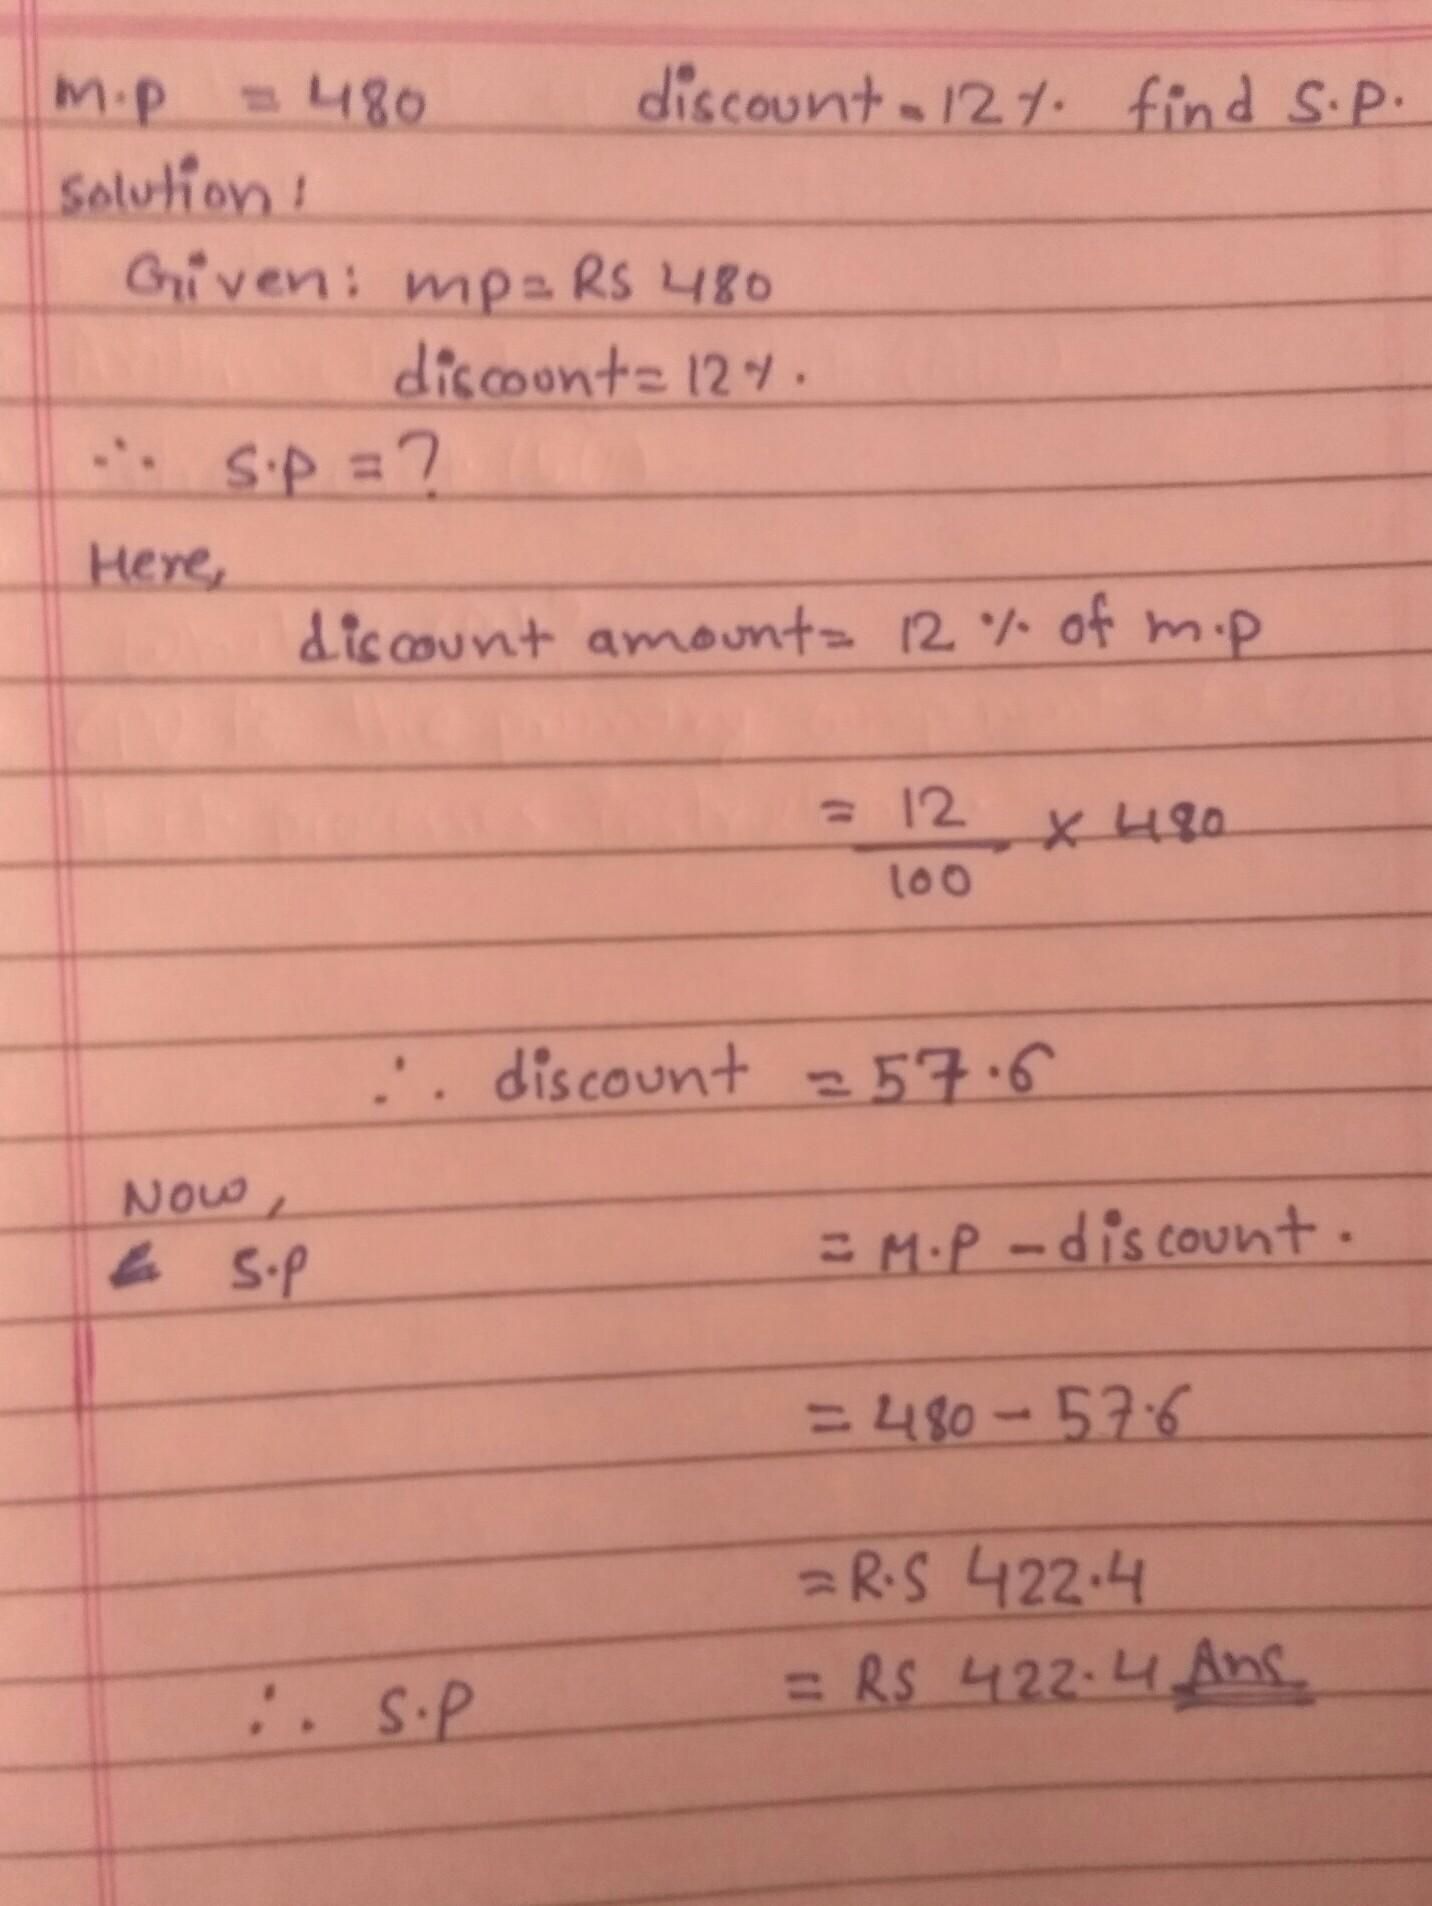 m.p = 480 discount = 12%. find S.P.
Solution:
Given: mp = RS 480
discount = 12%.
∴ S.P = ?
Here,
discount amount = 12 % of m.p
= 12/100 x 480
∴ discount = 57.6
Now,
S.P = M.P - discount.
= 480 - 57.6
= R.S 422.4
∴ S.P = RS 422.4 Ans